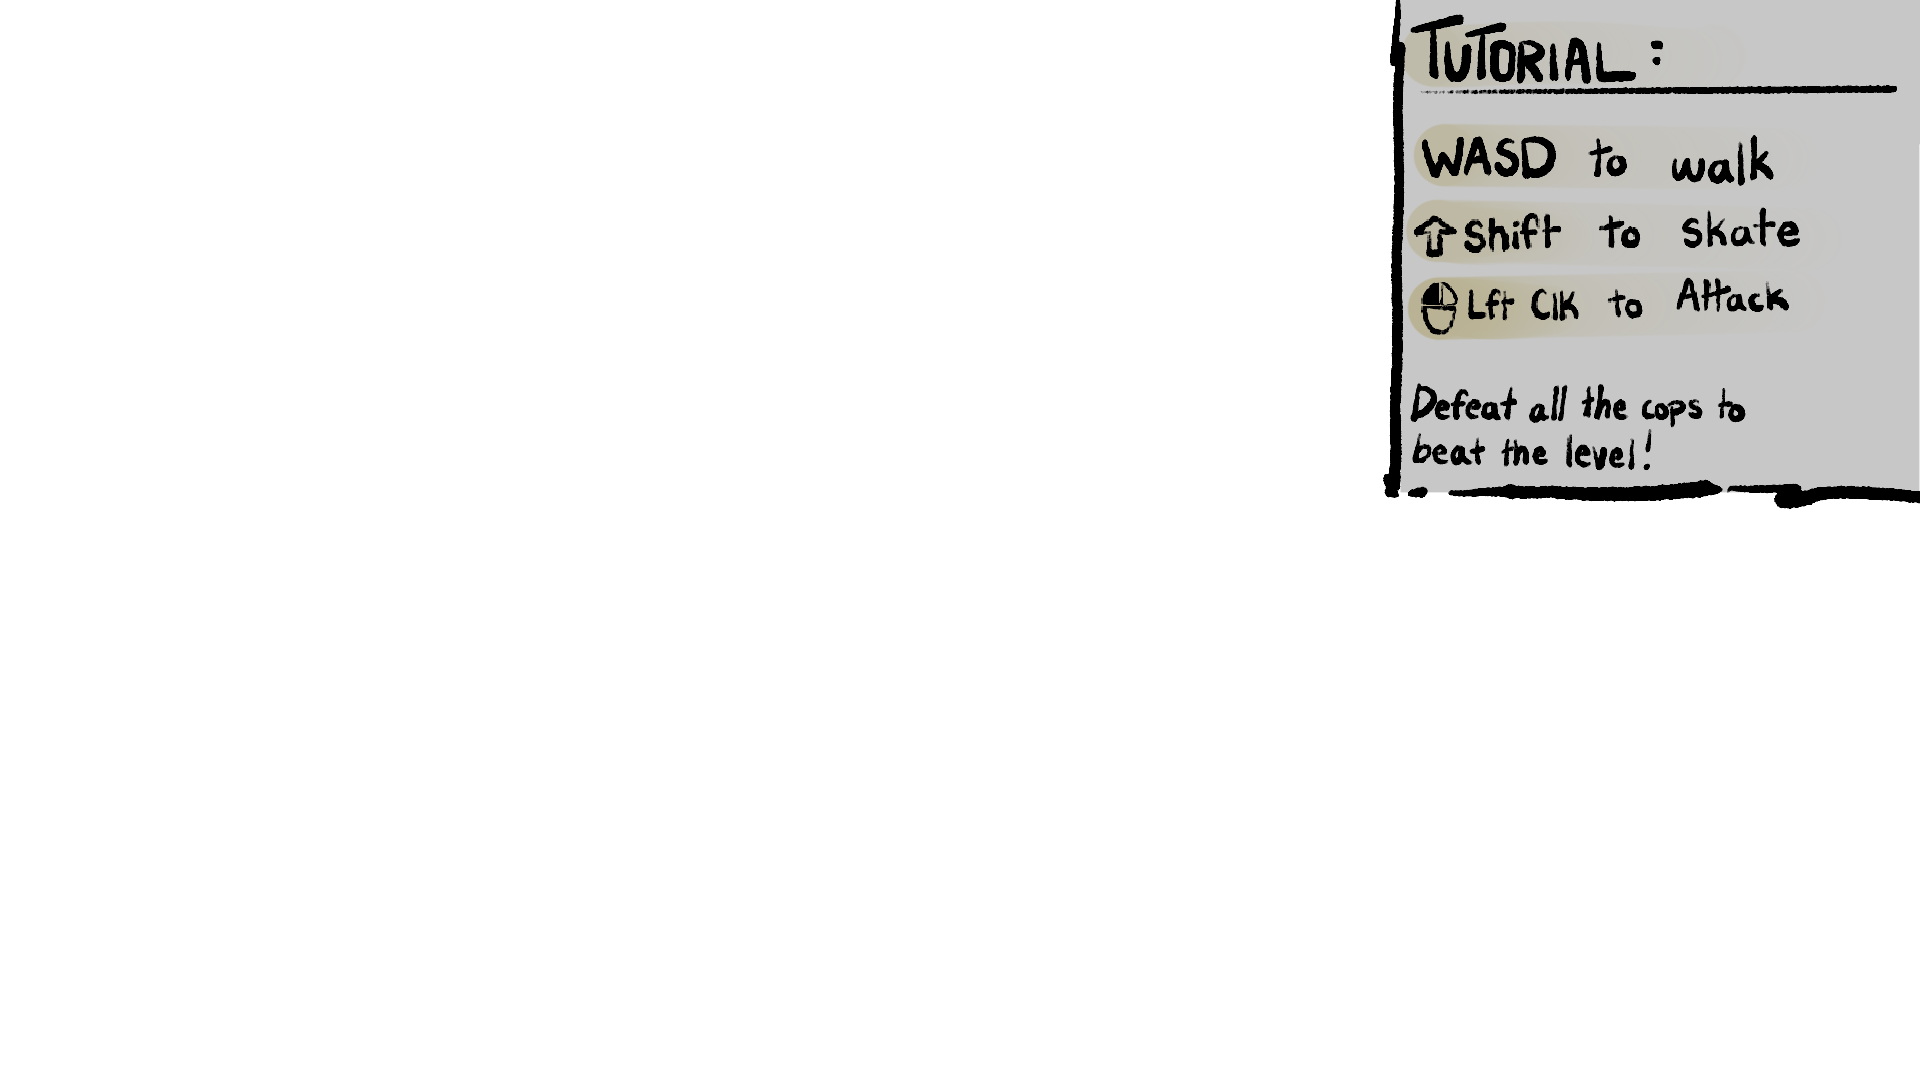 TUTORIAL:
WASD to walk
Shift to skate
Lft Clk to Attack
Defeat all the cops to
beat the level!